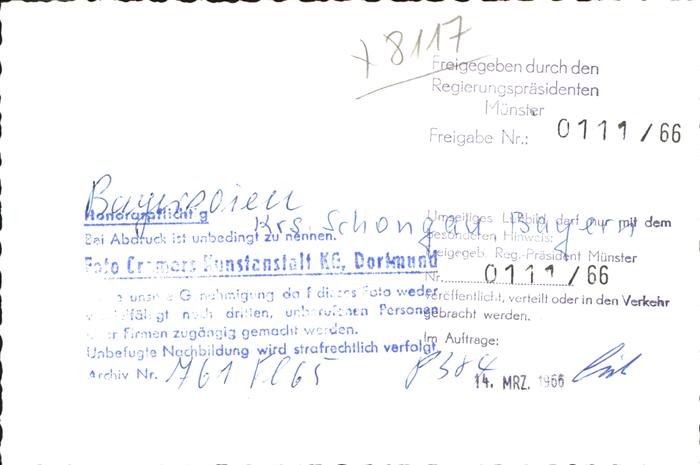 8117
Freigegeben durch den
Regierungspräsidenten
Münster
Freigabe Nr.: 0111/66
Bayersoien
Krs. Schongau Bayern
Honorarpflichtig
Bei Abdruck ist unbedingt zu nennen.
Foto Cramers Kunstanstalt KG, Dortmund
unsere Genehmigung darf dieses Foto weder
vervielfältigt noch dritten, unberufenen Personen
oder Firmen zugängig gemacht werden.
Unbefugte Nachbildung wird strafrechtlich verfolgt
Archiv Nr. 761
Luftbild, darf nur mit dem
besonderen Hinweis:
Freigegeb. Reg.-Präsident Münster
Nr. 0111/66
veröffentlicht, verteilt oder in den Verkehr
gebracht werden.
Im Auftrage:
P 384
14. MRZ. 1966